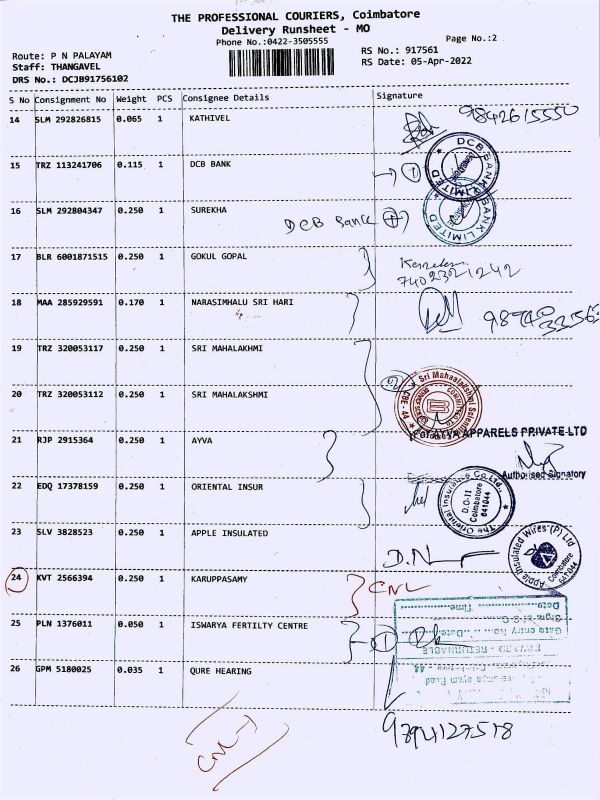 THE PROFESSIONAL COURIERS, Coimbatore
Delivery Runsheet - MO
Phone No.:0422-3505555
Page No.:2
Route: P N PALAYAM
RS No.: 917561
Staff: THANGAVEL
RS Date: 05-Apr-2022
DRS No.: DCJB91756102
S No Consignment No Weight PCS Consignee Details Signature
14 SLM 292826815 0.065 1 KATHIVEL 9842615550
15 TRZ 113241706 0.115 1 DCB BANK 1
DCB BANK LIMITED
16 SLM 292804347 0.250 1 SUREKHA
DCB Bank
BANK LIMITED
17 BLR 6001871515 0.250 1 GOKUL GOPAL
7402321242
18 MAA 285929591 0.170 1 NARASIMHALU SRI HARI
19 TRZ 320053117 0.250 1 SRI MAHALAKHMI
20 TRZ 320053112 0.250 1 SRI MAHALAKSHMI
2
Sri Mahaalakshmi
21 RJP 2915364 0.250 1 AYVA
For AYVA APPARELS PRIVATE LTD
Authorised Signatory
22 EDQ 17378159 0.250 1 ORIENTAL INSUR
The Oriental Insurance Co. Ltd.,
D.O-II
Coimbatore
641044
23 SLV 3828523 0.250 1 APPLE INSULATED
D.N
Apple Insulated Wires (P) Ltd
Coimbatore
641044
24 KVT 2566394 0.250 1 KARUPPASAMY
CNL
25 PLN 1376011 0.050 1 ISWARYA FERTILTY CENTRE 1
Date Time
Gate entry No. Date
RETURNABLE
26 GPM 5180025 0.035 1 QURE HEARING
9794127518
CNL-1